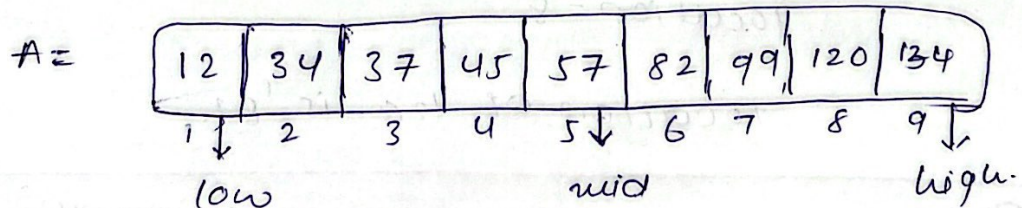 A= 12 34 37 45 57 82 99 120 134
1 2 3 4 5 6 7 8 9
low mid high.